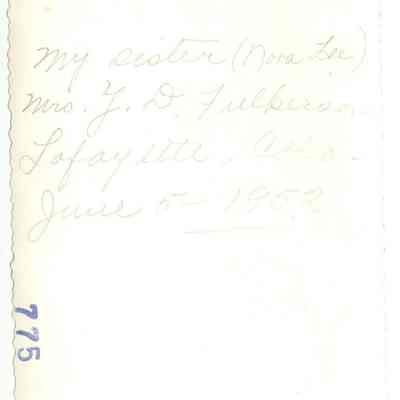 My sister (Nora Lee)
Mrs. Y. D. Fulkerson
Lafayette,
June 5- 1952
775